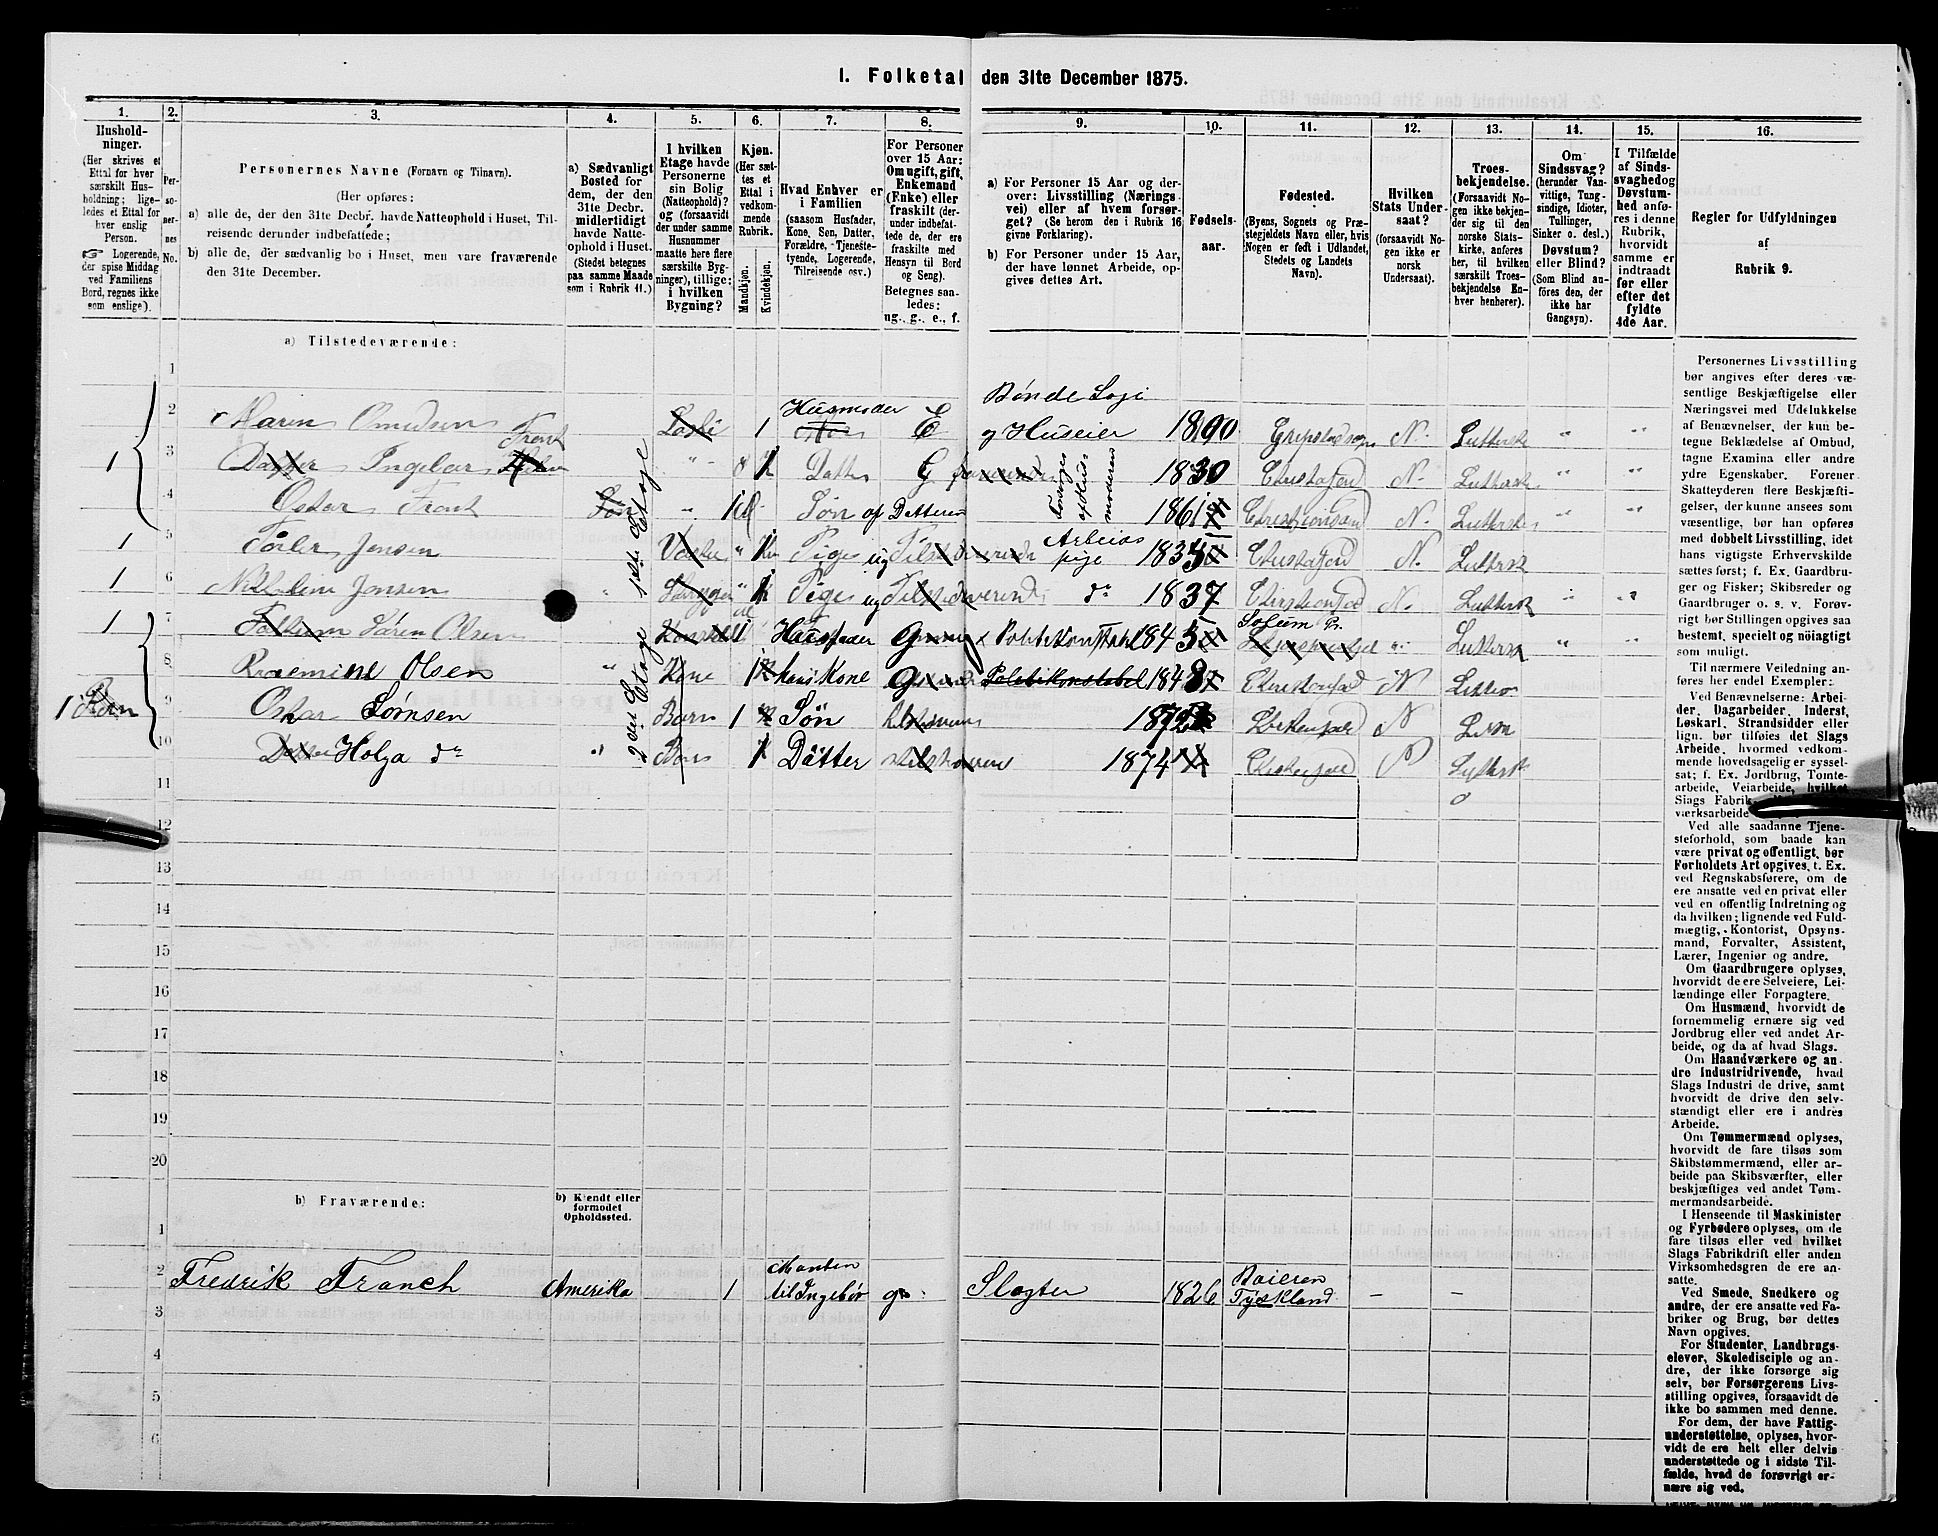 1. Folketal den 31te December 1875.
1. 2. 3. 4. 5. 6. 7. 8. 9. 10. 11. 12. 13. 14. 15. 16.
Hushold-
ninger.
(Her skrives et
Ettal for hver
særskilt Hus-
holdning; lige-
ledes et Ettal for
hver enslig
Person.
☞ Logerende,
der spise Middag
ved Familiens
Bord, regnes ikke
som enslige).
Per-
so-
ner-
nes
No.
Personernes Navne (Fornavn og Tilnavn).
(Her opføres:
a) alle de, der den 31te Decbr. havde Natteophold i Huset, Til-
reisende derunder indbefattede;
b) alle de, der sædvanlig bo i Huset, men vare fraværende
den 31te December.
a) Sædvanligt
Bosted for
dem, der den
31te Decbr.
midlertidigt
havde Natte-
ophold i Huset.
(Stedet betegnes
paa samme Maade
som i Rubrik 11.)
I hvilken
Etage havde
Personerne
sin Bolig
(Natteophold)?
og (forsaavidt
der under samme
Husnummer
maatte høre flere
særskilte Byg-
ninger), tillige:
i hvilken
Bygning?
Kjøn.
(Her sæt-
tes et
Ettal i
vedkom-
mende
Rubrik.
Mandkjøn.
Kvindekjøn.
Hvad Enhver er
i Familien
(saasom Husfader,
Kone, Søn, Datter,
Forældre, Tjeneste-
tyende, Logerende,
Tilreisende osv.)
For Personer
over 15 Aar:
Om ugift, gift,
Enkemand
(Enke) eller
fraskilt (der-
under indbefat-
tede de, der ere
fraskilte med
Hensyn til Bord
og Seng).
Betegnes saa-
ledes:
ug., g., e., f.
a) For Personer 15 Aar og der-
over: Livsstilling (Nærings-
vei) eller af hvem forsør-
get? (Se herom den i Rubrik 16
givne Forklaring).
b) For Personer under 15 Aar,
der have lønnet Arbeide, op-
gives dettes Art.
Fødsels-
aar.
Fødested.
(Byens, Sognets og Præ-
stegjeldets Navn eller, hvis
Nogen er født i Udlandet,
Stedets og Landets
Navn).
Hvilken
Stats Under-
saat?
(forsaavidt No-
gen ikke er
norsk
Undersaat).
Troes-
bekjendelse.
(Forsaavidt No-
gen ikke bekjen-
der sig til den
norske Stats-
kirke, anføres
her, til hvilken
særskilt Troes-
bekjendelse En-
hver henhører).
Om
Sindssvag?
(herunder Van-
vittige, Tung-
sindige, Idioter,
Tullinger,
Sinker o. desl.)
Døvstum?
eller Blind?
(Som Blind an-
føres den, der
ikke har
Gangsyn).
I Tilfælde
af Sinds-
svaghed og
Døvstum-
hed anfø-
res i denne
Rubrik,
hvorvidt
samme er
indtraadt
før eller
efter det
fyldte
4de Aar.
Regler for Udfyldningen
af
Rubrik 9.
a) Tilstedeværende:
1
2 Maren Omdsen 1 Husmoder E Huseier N. Luttersk
3 1 Ingebor Datter G 1830 N. Luttersk
4 Oskar Frank Søn af Datteren 1861 N. Luttersk
5 1 Jensen Pige ug Arbeids pige 1835 N. Luttersk
6 1 Jensen Pige ug do 1837 N. Luttersk
7 1 Sören Olsen Husfader
8 Olsen Kone Kone Politikonstabel N
9 Oskar Sørnsen Barn 1 Søn 1872 N
10 Holga do Datter 1874 N Luttersk
1ste Etage
2det Etage
11
12
13
14
15
16
17
18
19
20
b) Fraværende:
b) Kjendt eller
formodet
Opholdssted.
1
2 Fredrik Franch Amerika 1 Manden til Ingebor g Slagter 1826 Baieren Tyskland – –
3
4
5
6
Personernes Livsstilling
bør angives efter deres væ-
sentlige Beskjæftigelse eller
Næringsvei med Udelukkelse
af Benævnelser, der kun be-
tegne Beklædelse af Ombud,
tagne Examina eller andre
ydre Egenskaber. Forener
Skatteyderen flere Beskjæfti-
gelser, der kunne ansees som
væsentlige, bør han opføres
med dobbelt Livsstilling, idet
hans vigtigste Erhvervskilde
sættes først; f. Ex. Gaardbru-
ger og Fisker; Skibsreder og
Gaardbruger o. s. v. Forøv-
rigt bør Stillingen opgives saa
bestemt, specielt og nøiagtigt
som muligt.
Til nærmere Veiledning an-
føres her endel Exempler:
Ved Benævnelserne: Arbei-
der, Dagarbeider, Inderst,
Løskarl, Strandsidder eller
lign. bør tilføies det Slags
Arbeide, hvormed vedkom-
mende hovedsagelig er syssel-
sat; f. Ex. Jordbrug, Tomte-
arbeide, Veiarbeide, hvilket
Slags Fabrik-
værksarbeide
Ved alle saadanne Tjene-
steforhold, som baade kan
være privat og offentligt, bør
Forholdets Art opgives, t. Ex.
ved Regnskabsførere, om de
ere ansatte ved en privat eller
ved en offentlig Indretning og
da hvilken; lignende ved Fuld-
mægtig, Kontorist, Opsyns-
mand, Forvalter, Assistent,
Lærer, Ingeniør og andre.
Om Gaardbrugere oplyses,
hvorvidt de ere Selveiere, Lei-
lændinge eller Forpagtere.
Om Husmænd, hvorvidt de
fornemmelig ernære sig ved
Jordbrug eller ved andet Ar-
beide, og da af hvad Slags.
Om Haandværkere og an-
dre Industridrivende, hvad
Slags Industri de drive, samt
hvorvidt de drive den selv-
stændigt eller ere i andres
Arbeide.
Om Tømmermænd oplyses,
hvorvidt de fare tilsøs som
Skibstømmermænd, eller ar-
beide paa Skibsværfter, eller
beskjæftiges ved andet Tøm-
mermandsarbeide.
I Henseende til Maskinister
og Fyrbødere oplyses, om de
fare tilsøs eller ved hvilket
Slags Fabrikdrift eller anden
Virksomhedsgren de ere an-
satte.
Ved Smede, Snedkere og
andre, der ere ansatte ved Fa-
briker og Brug, bør dettes
Navn opgives.
For Studenter, Landbrugs-
elever, Skoledisciple og an-
dre, der ikke forsørge sig
selv, bør Forsørgerens Livs-
stilling opgives, forsaavidt de
ikke bo sammen med denne.
For dem, der have Fattig-
understøttelse, oplyses, hvor-
vidt de ere helt eller delvis
understøttede og i sidste Til-
fælde, hvad de forøvrigt er-
nære sig ved.